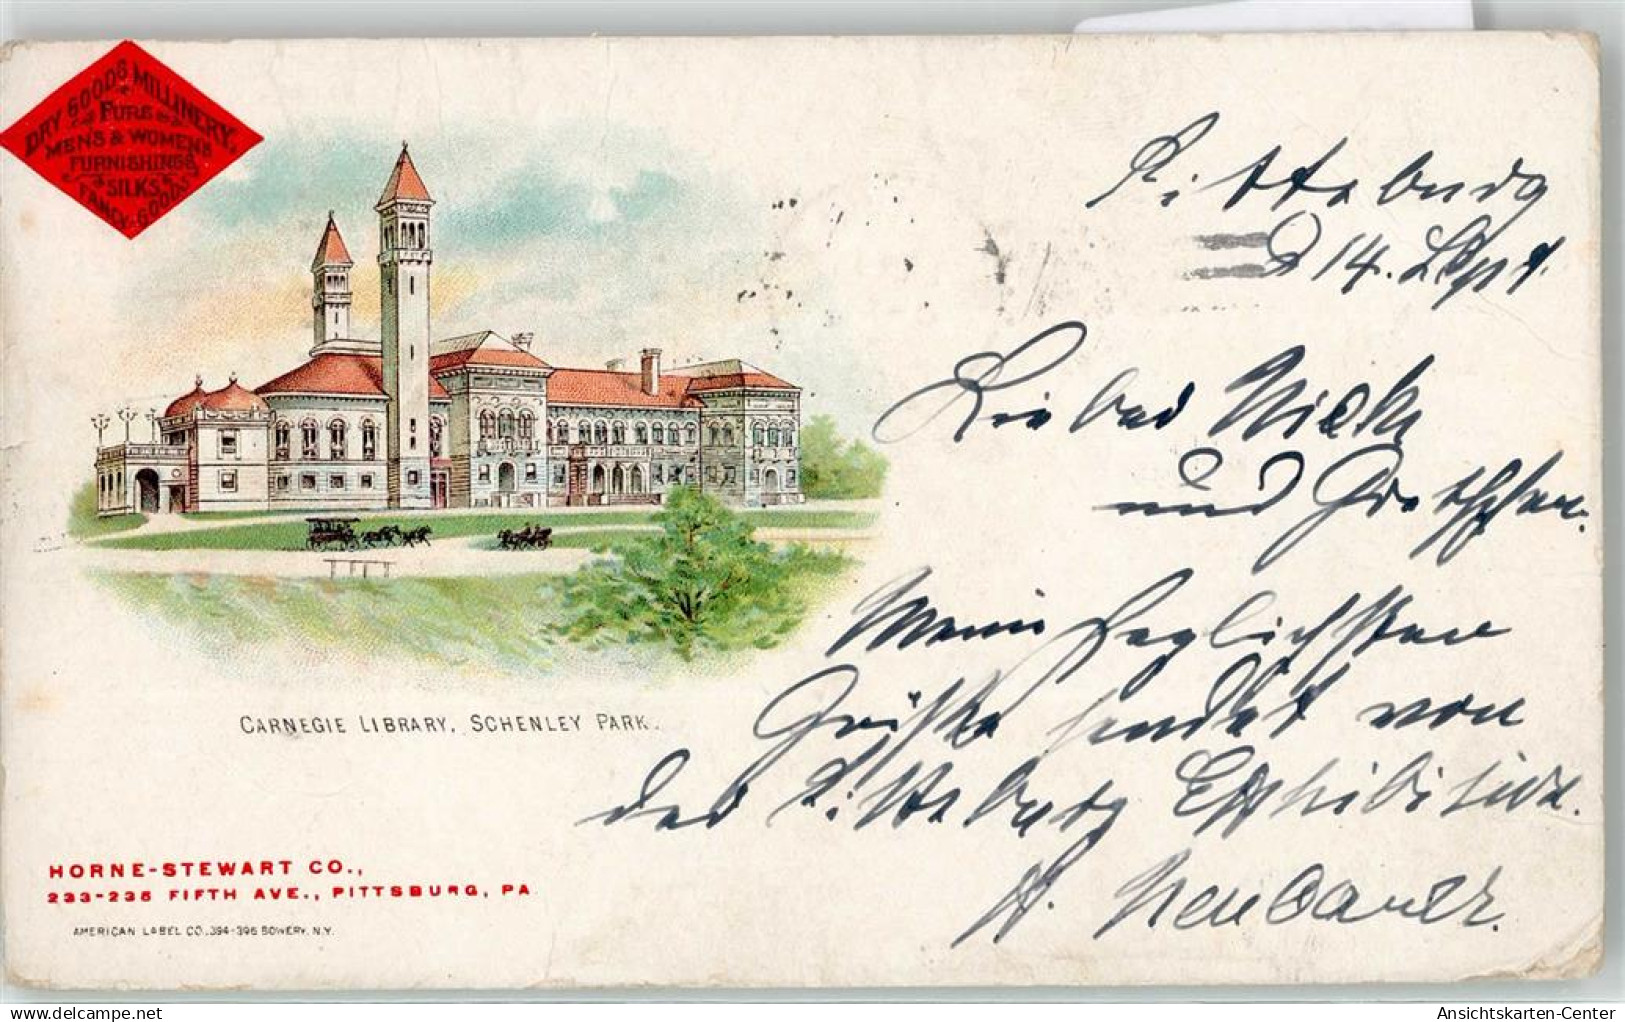 DRY GOODS, MILLINERY,
FURS
MEN'S & WOMEN'S
FURNISHINGS,
SILKS,
FANCY GOODS
Pittsburg
D 14. Sept.
Lieber
und Gretchen.
Meine herzlichsten
Grüße sendet von
der Pittsburg Exhibition.
CARNEGIE LIBRARY, SCHENLEY PARK.
HORNE-STEWART CO.,
233-235 FIFTH AVE., PITTSBURG, PA.
AMERICAN LABEL CO., 394-396 BOWERY, N.Y.
Ansichtskarten-Center